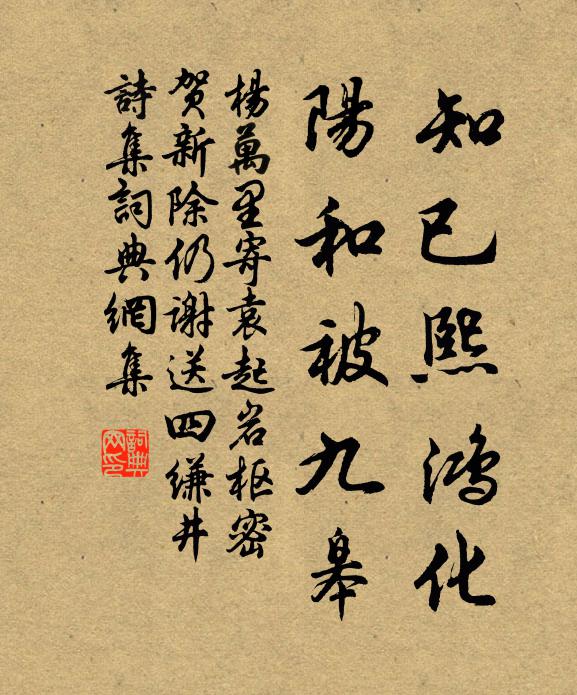 知已熙鴻化
陽和被九皋
楊萬里寄袁起岩枢密
贺新除仍谢送四缣井
詩集詞典網集
詞典网印